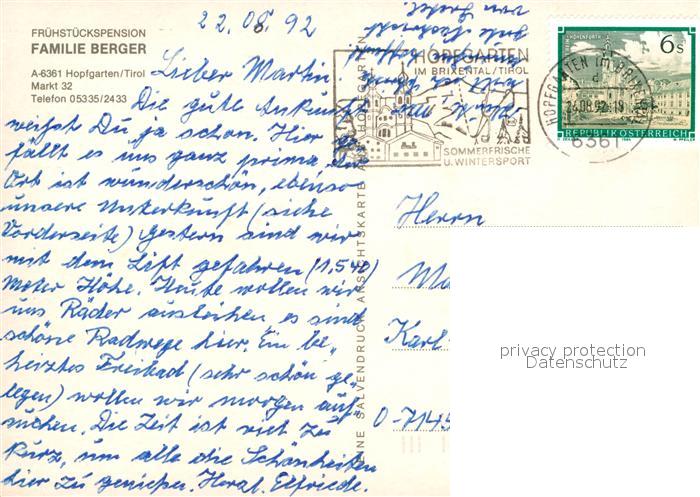 22.08.92
FRÜHSTÜCKSPENSION
FAMILIE BERGER
A-6361 Hopfgarten/Tirol
Markt 32
Telefon 05335/2433
Lieber Martin.
Die gute Ankunft
weißt Du ja schon. Hier
fällt es uns ganz prima. Der
Ort ist wunderschön, ebenso
unsere Unterkunft (siehe
Vorderseite) Gestern sind wir
mit dem Lift gefahren (1,540)
Meter Höhe. Heute wollen wir
uns Räder ausleihen, es sind
schöne Radwege hier. Ein be-
heiztes Freibad (sehr schön ge-
legen) wollen wir morgen auf-
suchen. Die Zeit ist viel zu
kurz, um alle die Schönheiten
hier zu genießen. Herzl. Elfriede.
HOPFGARTEN
IM BRIXENTAL/TIROL
SOMMERFRISCHE
U. WINTERSPORT
6361
6 s
REPUBLIK ÖSTERREICH
EINE SALVENDRUCK ANSICHTSKARTE AUS HOPFGARTEN
Herrn
Ma
Karl-
D-7145
privacy protection
Datenschutz